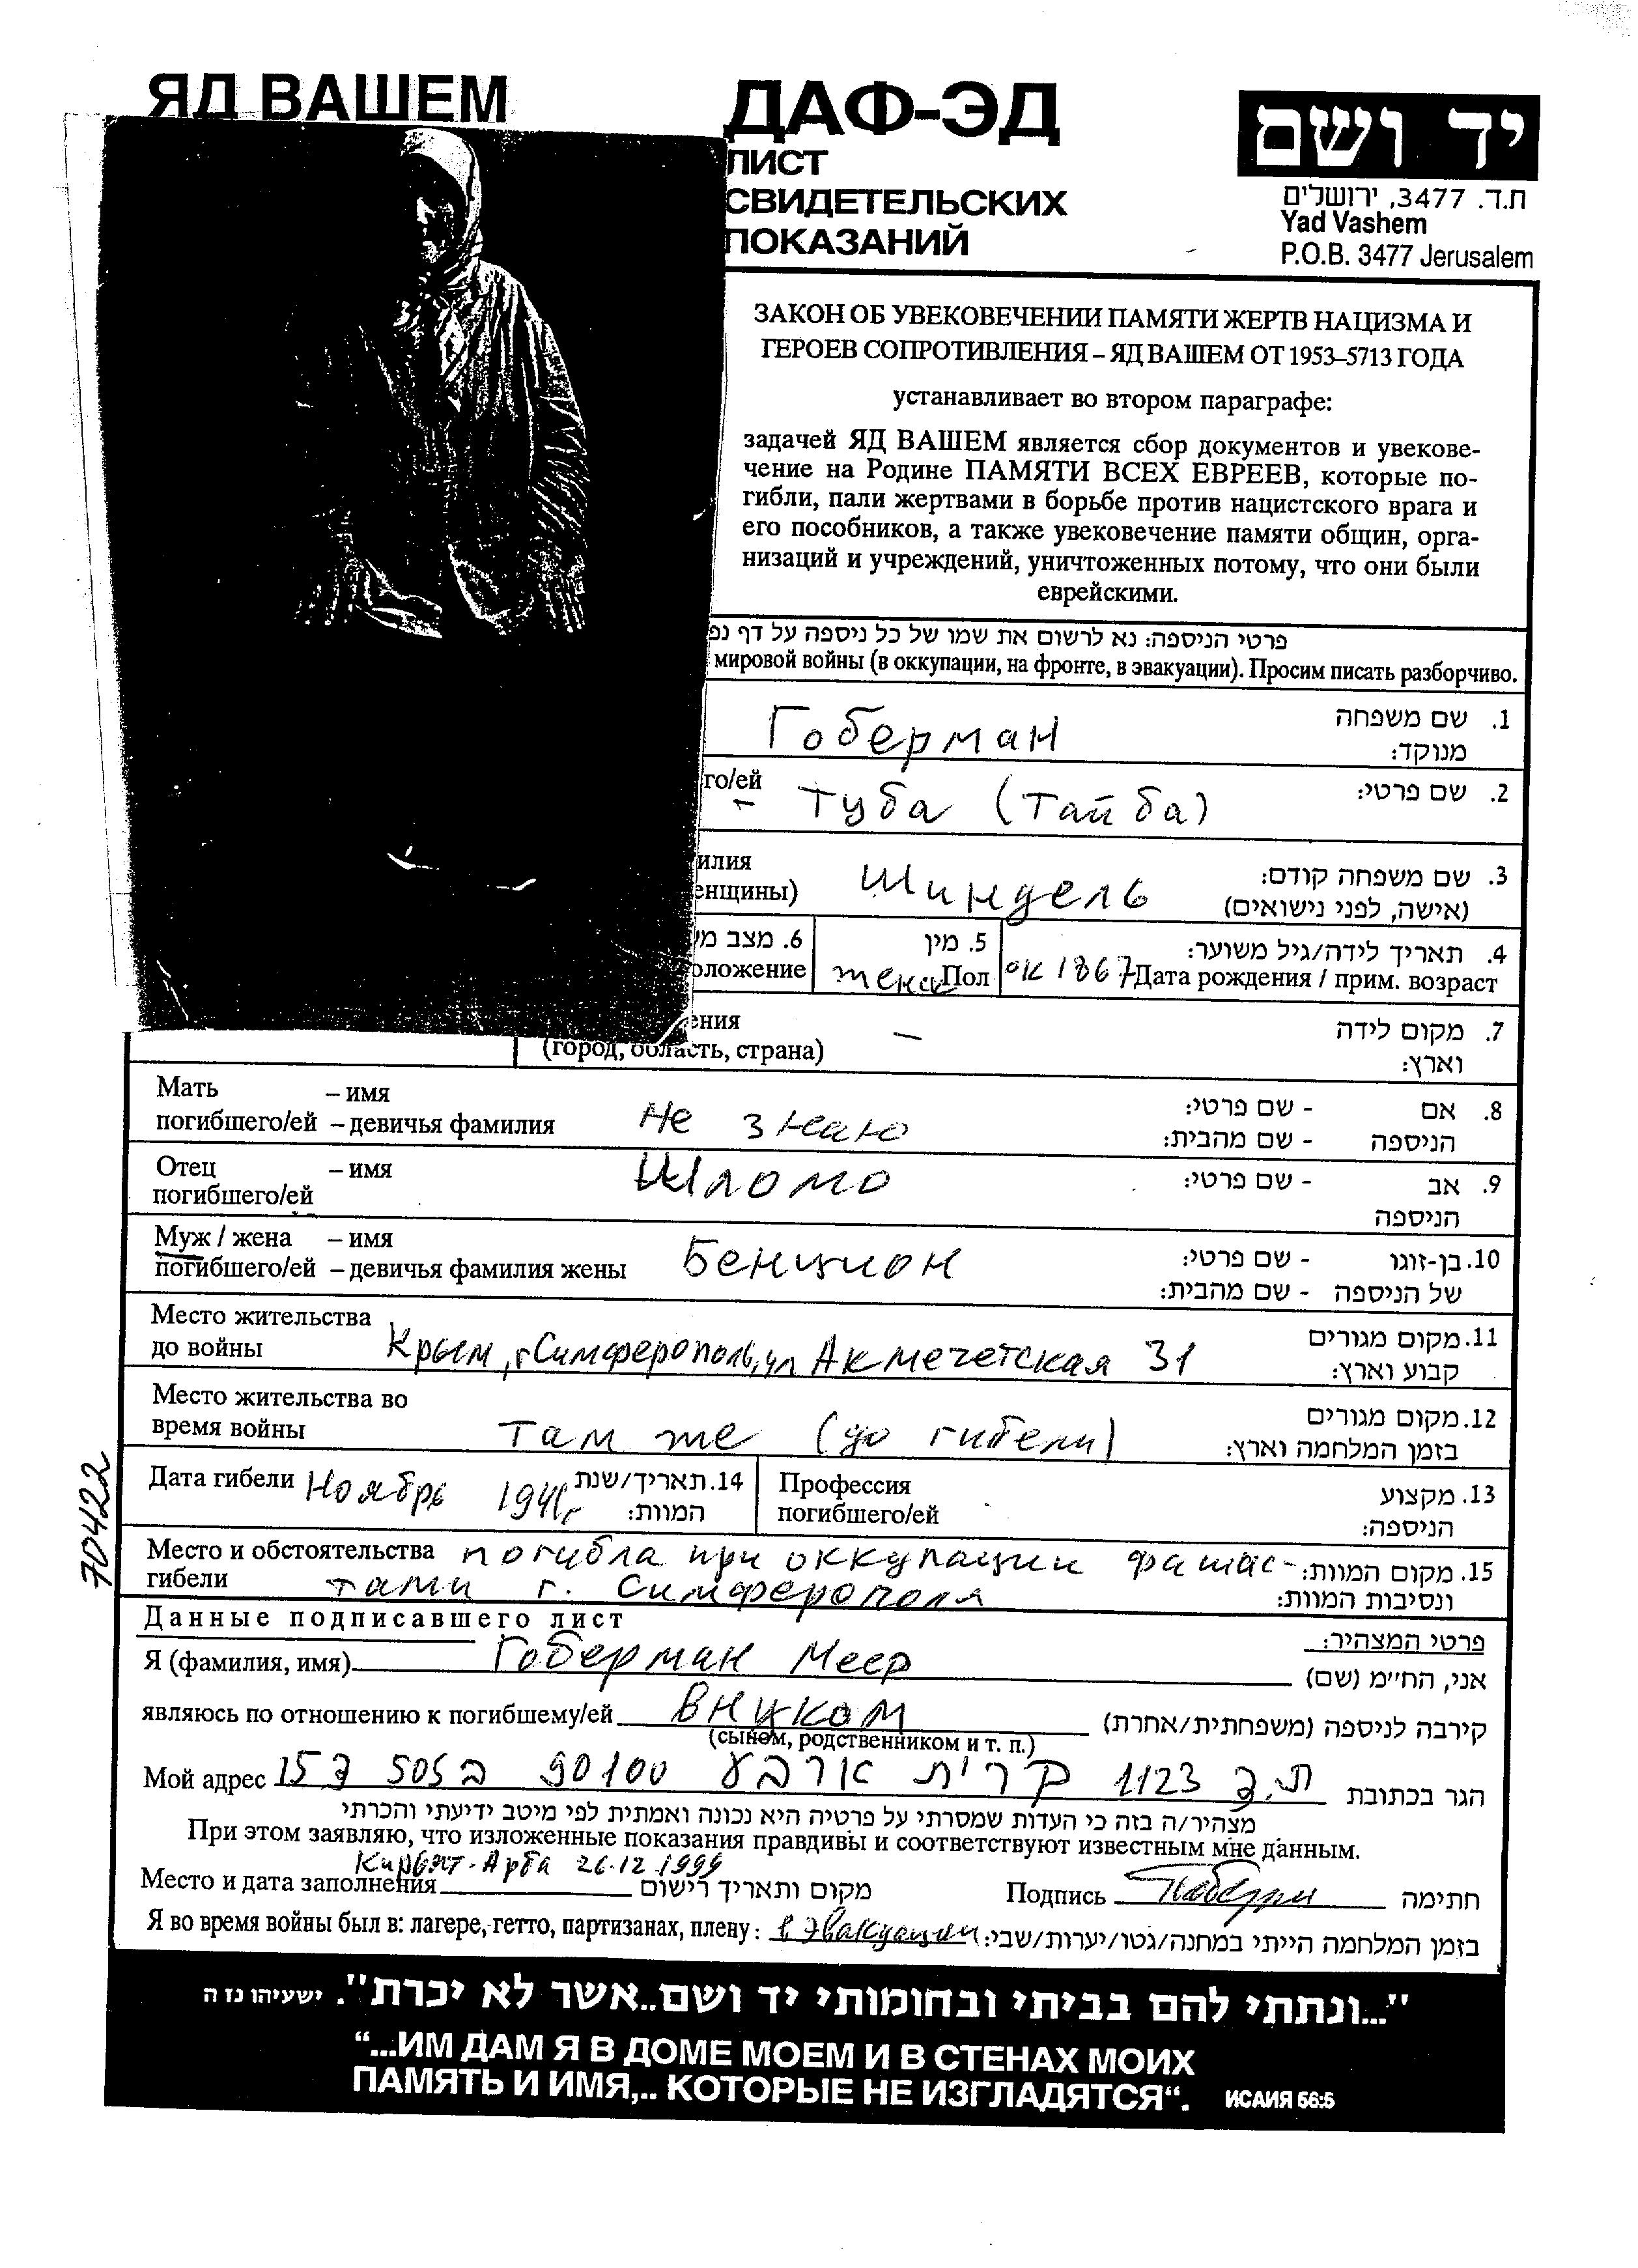 ЯД ВАШЕМ
ДАФ-ЭД
ЛИСТ
СВИДЕТЕЛЬСКИХ
ПОКАЗАНИЙ
יד ושם
ת.ד. 3477, ירושלים
Yad Vashem
P.O.B. 3477 Jerusalem
ЗАКОН ОБ УВЕКОВЕЧЕНИИ ПАМЯТИ ЖЕРТВ НАЦИЗМА И
ГЕРОЕВ СОПРОТИВЛЕНИЯ – ЯД ВАШЕМ ОТ 1953–5713 ГОДА
устанавливает во втором параграфе:
задачей ЯД ВАШЕМ является сбор документов и увекове-
чение на Родине ПАМЯТИ ВСЕХ ЕВРЕЕВ, которые по-
гибли, пали жертвами в борьбе против нацистского врага и
его пособников, а также увековечение памяти общин, орга-
низаций и учреждений, уничтоженных потому, что они были
еврейскими.
פרטי הניספה: נא לרשום את שמו של כל ניספה על דף נפ
мировой войны (в оккупации, на фронте, в эвакуации). Просим писать разборчиво.
Гоберман 1. שם משפחה
מנוקד:
го/ей – Туба (Тайба) 2. שם פרטי:
илия Шиндель 3. שם משפחה קודם:
енщины) (אישה, לפני נישואים)
6. מצב מ 5. מין 4. תאריך לידה/גיל משוער:
оложение Пол ок 1867 Дата рождения / прим. возраст
ения – 7. מקום לידה
(город, область, страна) וארץ:
Мать – имя Не знаю - שם פרטי: 8. אם
погибшего/ей – девичья фамилия - שם מהבית: הניספה
Отец – имя Шломо - שם פרטי: 9. אב
погибшего/ей הניספה
Муж / жена – имя Бенцион - שם פרטי: 10. בן-זוגו
погибшего/ей – девичья фамилия жены - שם מהבית: של הניספה
Место жительства 11. מקום מגורים
до войны Крым, г Симферополь, ул Акмечетская 31 קבוע וארץ:
Место жительства во 12. מקום מגורים
время войны там же (до гибели) בזמן המלחמה וארץ:
Дата гибели Ноябрь 1941г 14. תאריך/שנת Профессия 13. מקצוע
המוות: погибшего/ей הניספה:
70422
Место и обстоятельства погибла при оккупации фашис- 15. מקום המוות:
гибели тами г. Симферополя ונסיבות המוות:
Данные подписавшего лист פרטי המצהיר:
Я (фамилия, имя) Гоберман Меер אני, החי"מ (שם)
являюсь по отношению к погибшему/ей внуком קירבה לניספה (משפחתית/אחרת)
(сыном, родственником и т. п.)
Мой адрес ת.ד 1123 קרית ארבע 90100 ב 505 ד 15 הגר בכתובת
מצהיר/ה בזה כי העדות שמסרתי על פרטיה היא נכונה ואמתית לפי מיטב ידיעתי והכרתי
При этом заявляю, что изложенные показания правдивы и соответствуют известным мне данным.
Кирьят-Арба 26.12.1999
Место и дата заполнения מקום ותאריך רישום Подпись חתימה
Я во время войны был в: лагере, гетто, партизанах, плену: в эвакуации בזמן המלחמה הייתי במחנה/גטו/יערות/שבי:
"...ונתתי להם בביתי ובחומותי יד ושם..אשר לא יכרת". ישעיהו נז ה
“...ИМ ДАМ Я В ДОМЕ МОЕМ И В СТЕНАХ МОИХ
ПАМЯТЬ И ИМЯ,.. КОТОРЫЕ НЕ ИЗГЛАДЯТСЯ“. ИСАИЯ 56:5